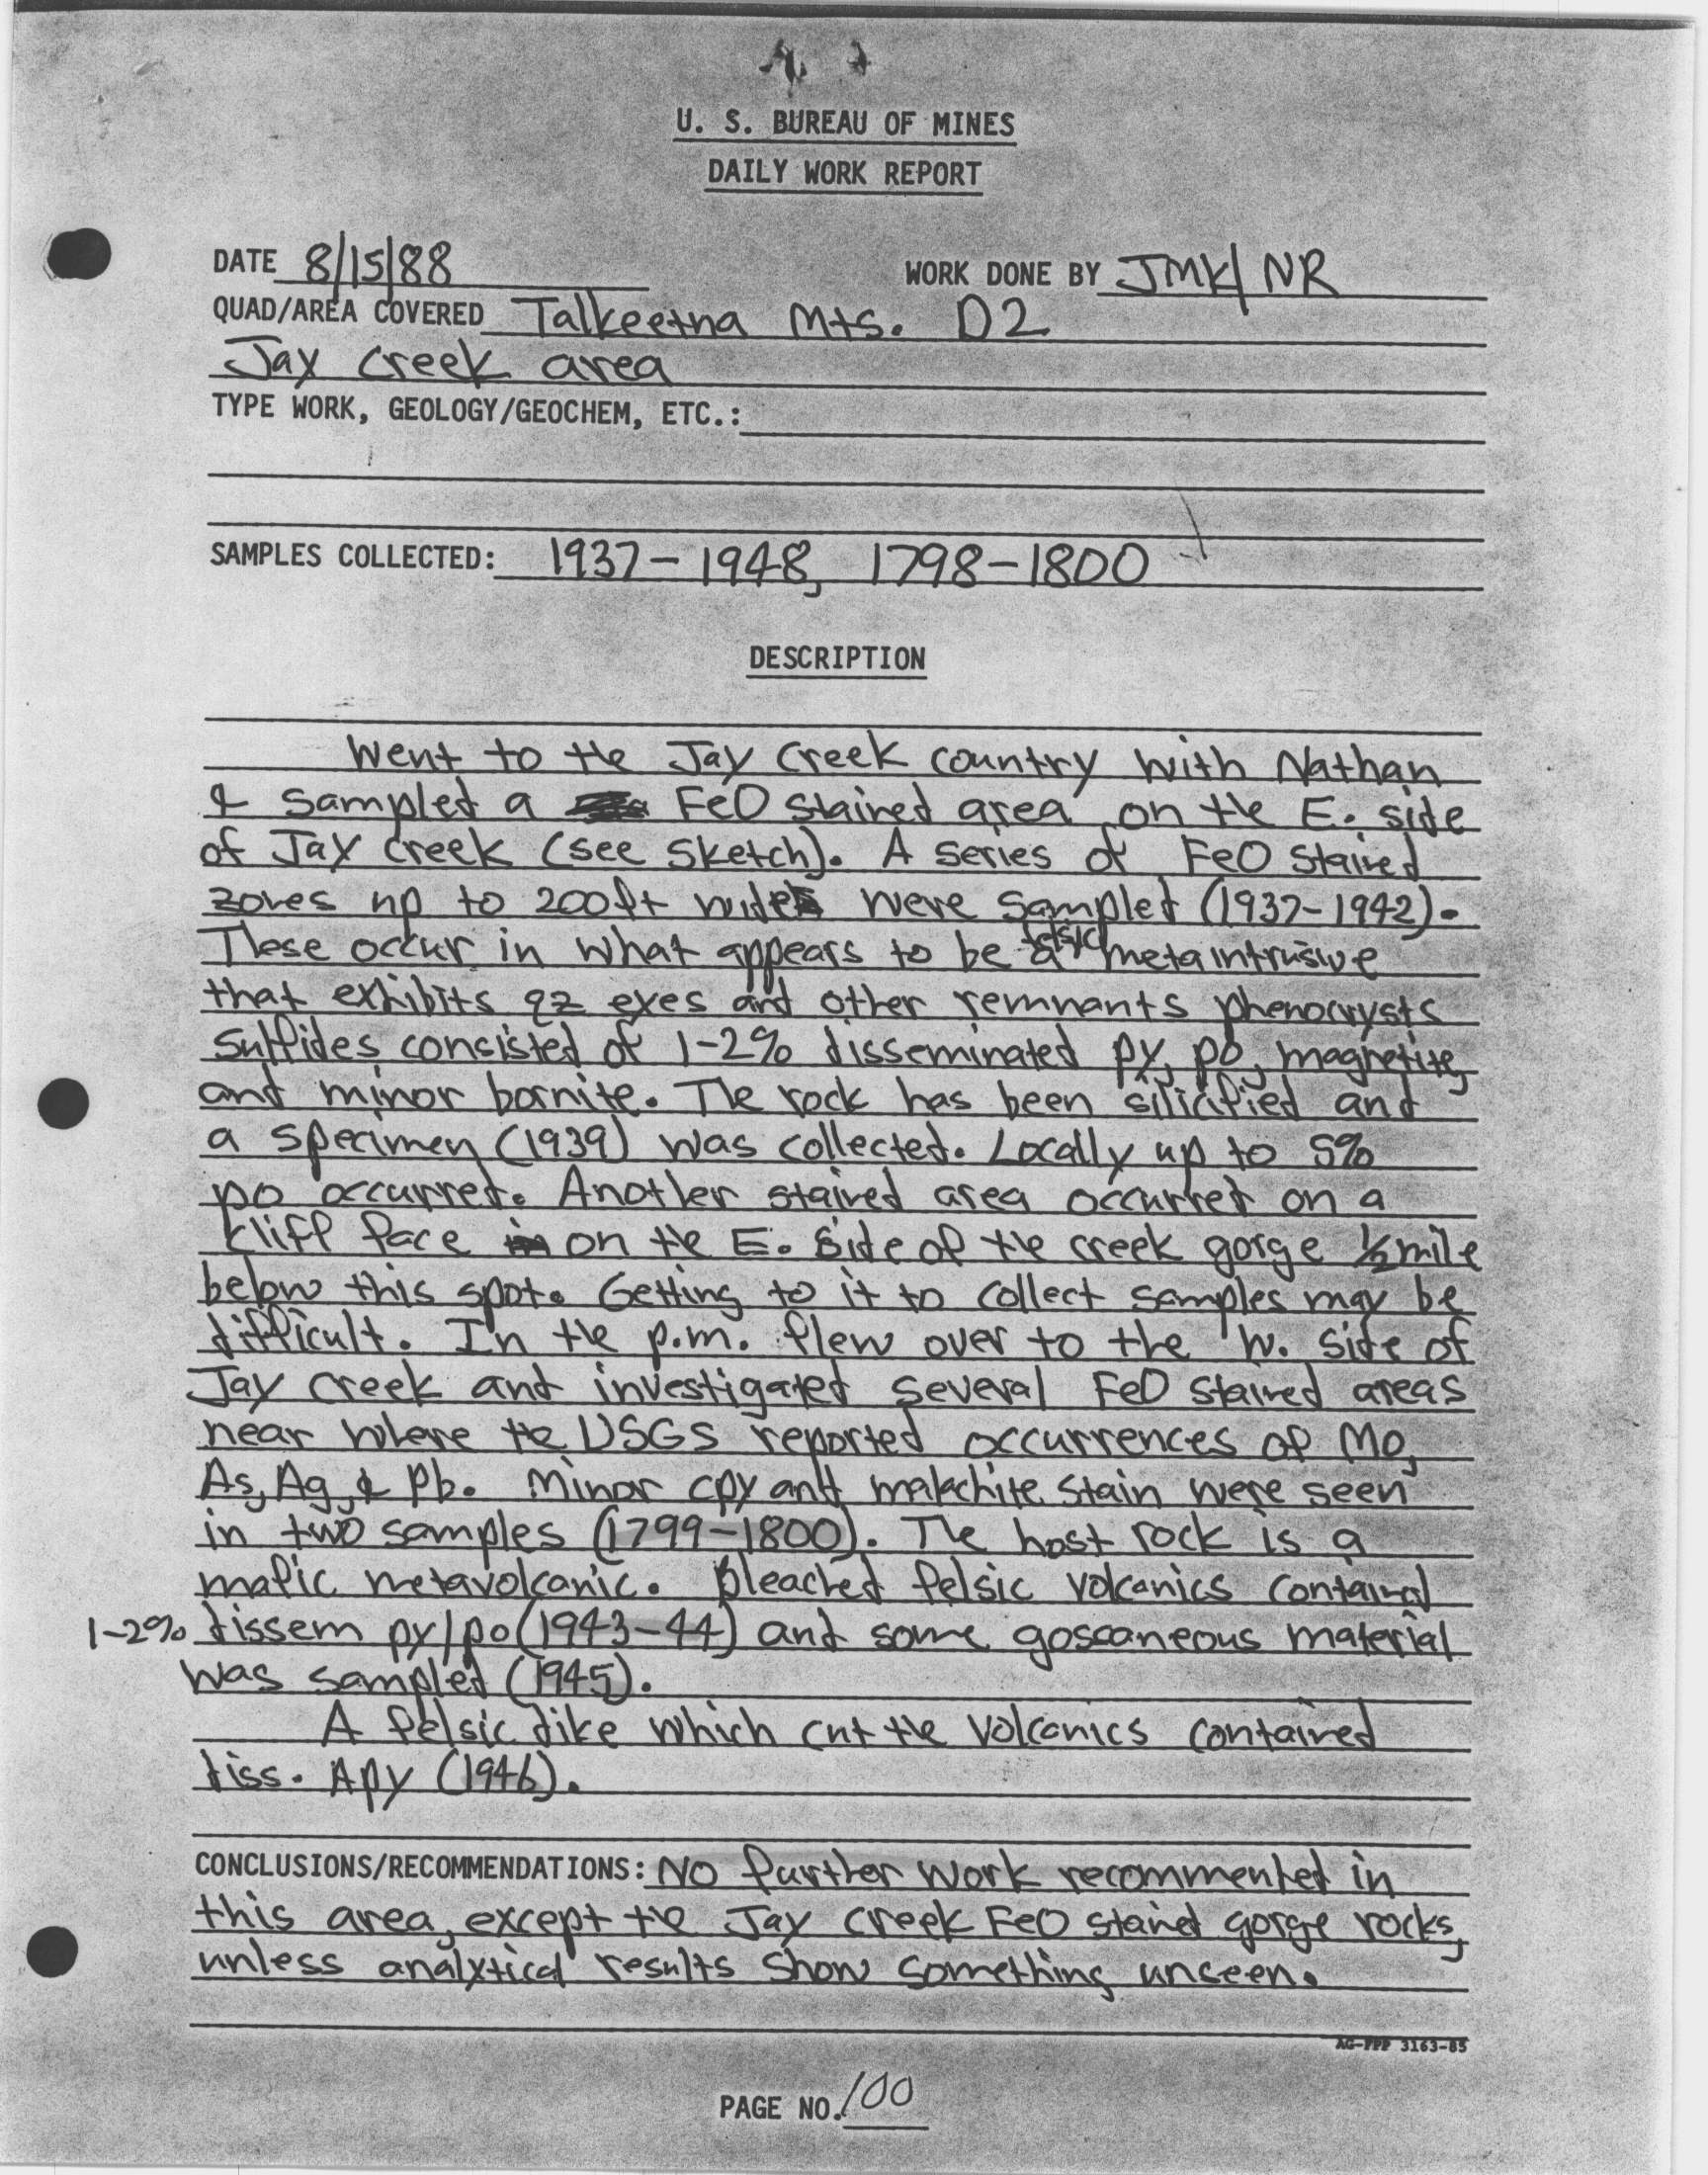 U. S. BUREAU OF MINES
DAILY WORK REPORT
DATE 8/15/88 WORK DONE BY JMK/NR
QUAD/AREA COVERED Talkeetna Mts. D2
Jay Creek area
TYPE WORK, GEOLOGY/GEOCHEM, ETC.:
SAMPLES COLLECTED: 1937-1948, 1798-1800
DESCRIPTION
Went to the Jay Creek country with Nathan
& sampled a FeO stained area on the E. side
of Jay Creek (see sketch). A series of FeO stained
zones up to 200ft wide were sampled (1937-1942).
These occur in what appears to be a felsic metaintrusive
that exhibits qz exes and other remnants phenocrysts
Sulfides consisted of 1-2% disseminated py, po, magnetite,
and minor bornite. The rock has been silicified and
a specimen (1939) was collected. Locally up to 5%
po occurred. Another stained area occurred on a
cliff face on the E. side of the creek gorge 1/2 mile
below this spot. Getting to it to collect samples may be
difficult. In the p.m. flew over to the W. side of
Jay Creek and investigated several FeO stained areas
near where the USGS reported occurrences of Mo,
As, Ag, & Pb. Minor cpy and malachite stain were seen
in two samples (1799-1800). The host rock is a
mafic metavolcanic. Bleached felsic volcanics contained
1-2% dissem py/po (1943-44) and some goscaneous material
was sampled (1945).
A felsic dike which cut the volcanics contained
diss. Apy (1946).
CONCLUSIONS/RECOMMENDATIONS: No further work recommended in
this area, except the Jay Creek FeO staind gorge rocks,
unless analytical results show something unseen.
AG-FPP 3163-85
PAGE NO. 100